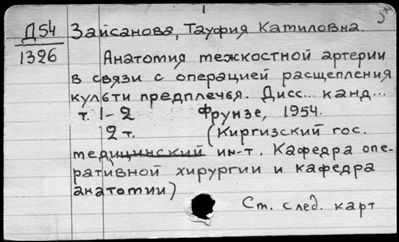 Д54
1326
Зайсанова, Тауфия Катиловна.
Анатомия межкостной артерии
в связи с операцией расщепления
культи предплечья. Дисс... канд...
т. 1-2 Фрунзе, 1954.
2 т. (Киргизский гос.
медицинский ин-т. Кафедра опе-
ративной хирургии и кафедра
анатомии)
Ст. след. карт